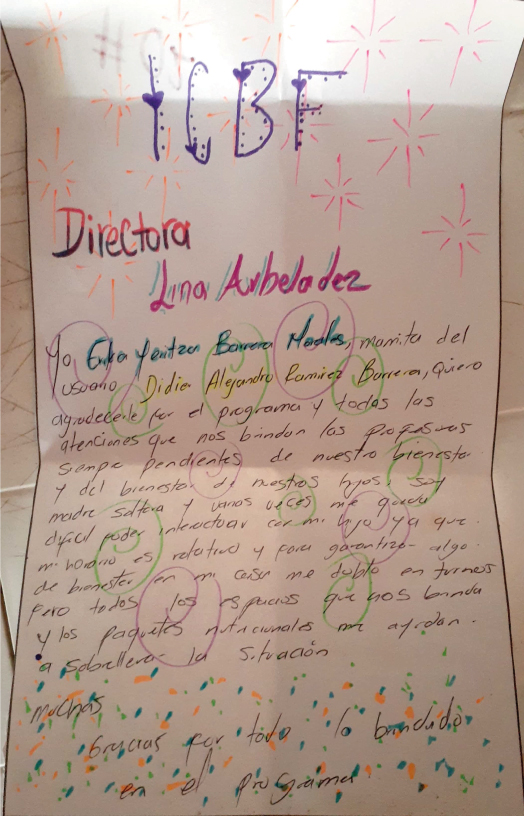 ICBF
Directora
Lina Arbelaez
Yo, Erika Yenitza Barrera Morales, mamita del
usuario Didier Alejandro Ramirez Barrera, quiero
agradecerle por el programa y todas las
atenciones que nos brindan las profesoras
siempre pendientes de nuestro bienestar
y del bienestar de nuestros hijos, soy
madre soltera y varias veces me queda
dificil poder interactuar con mi hijo ya que
mi horario es relativo y para garantizar algo
de bienestar en mi casa me doblo en turnos
Pero todos los espacios que nos brinda
y los paquetes nutricionales me ayudan
a sobrellevar la situación
muchas
Gracias por todo lo brindado
en el programa